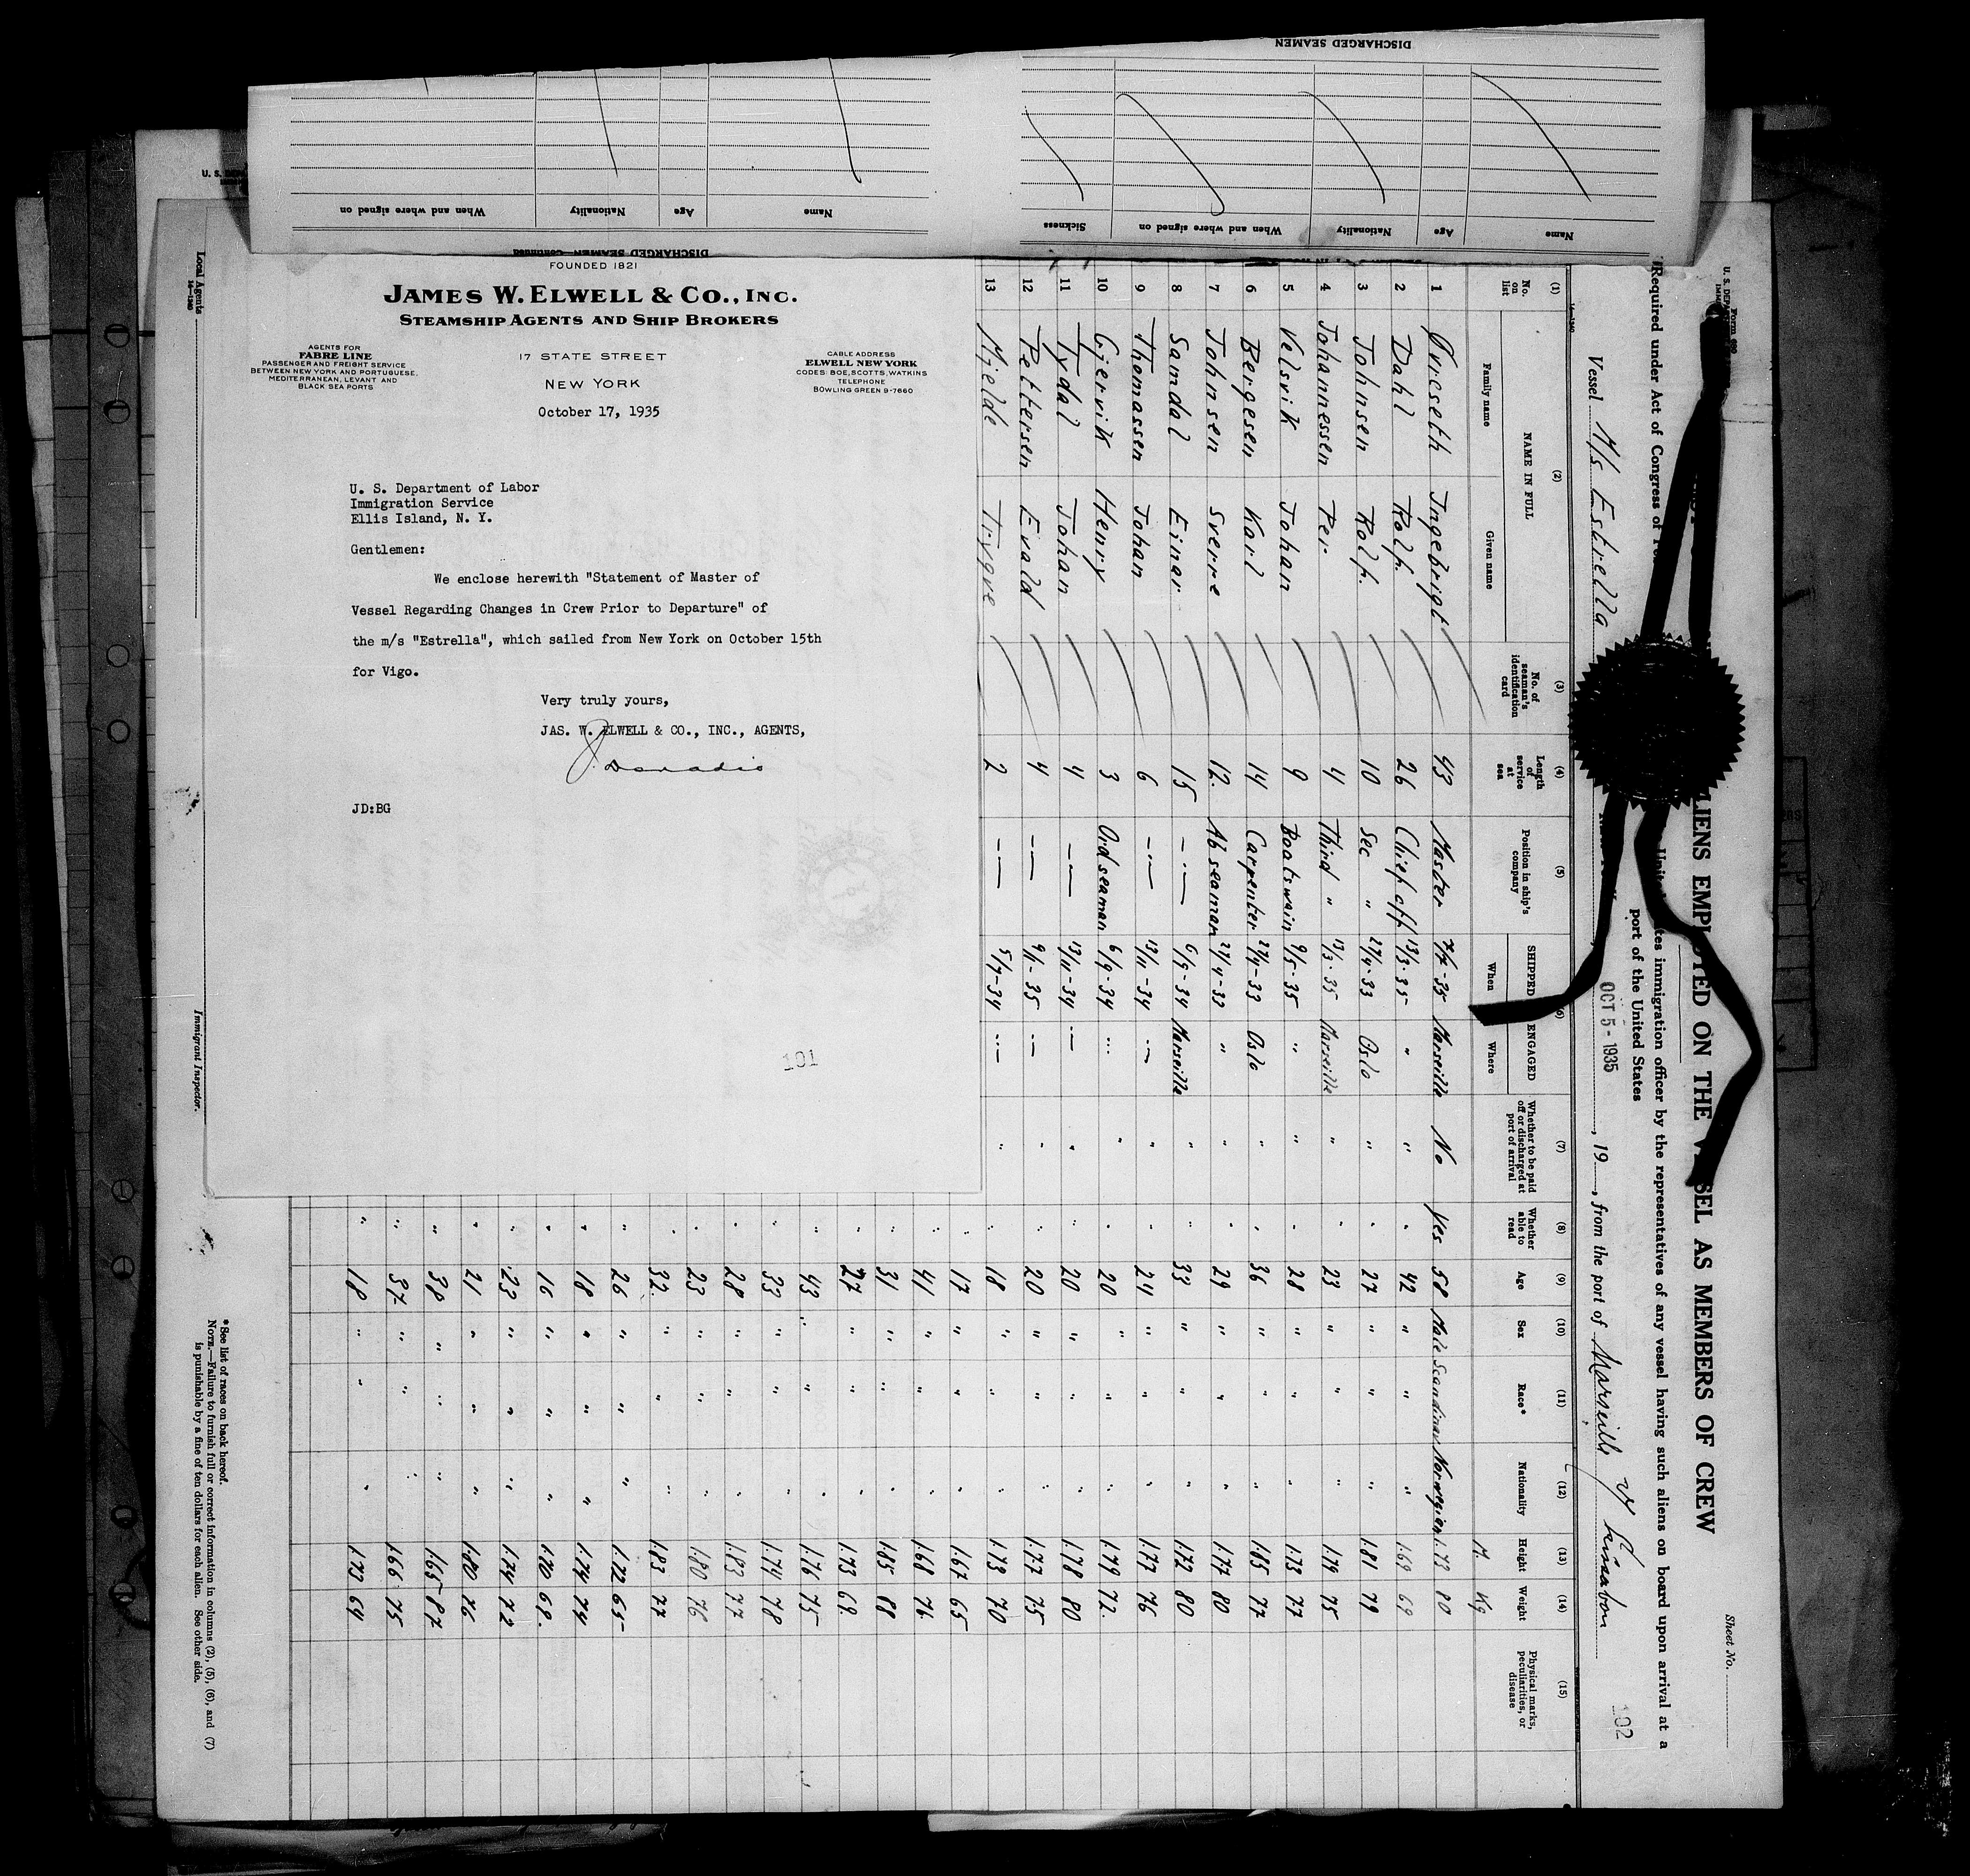 DISCHARGED SEAMEN
Name
Age
Nationality
When and where signed on
Sickness
Name
Age
Nationality
When and where signed on
DISCHARGED SEAMEN—Continued
FOUNDED 1821
JAMES W. ELWELL & CO., INC.
STEAMSHIP AGENTS AND SHIP BROKERS
AGENTS FOR
FABRE LINE
PASSENGER AND FREIGHT SERVICE
BETWEEN NEW YORK AND PORTUGUESE,
MEDITERRANEAN, LEVANT AND
BLACK SEA PORTS
17 STATE STREET
NEW YORK
CABLE ADDRESS
ELWELL NEW YORK
CODES: BOE, SCOTTS, WATKINS
TELEPHONE
BOWLING GREEN 9-7660
October 17, 1935
U. S. Department of Labor
Immigration Service
Ellis Island, N. Y.
Gentlemen:
We enclose herewith "Statement of Master of
Vessel Regarding Changes in Crew Prior to Departure" of
the m/s "Estrella", which sailed from New York on October 15th
for Vigo.
Very truly yours,
JAS. W. ELWELL & CO., INC., AGENTS,
JD:BG
101
Local Agents
Immigrant Inspector.
Form 680
U. S. DEPA
Sheet No.
LIENS EMPLOYED ON THE VESSEL AS MEMBERS OF CREW
Required under Act of Congress of
United States immigration officer by the representatives of any vessel having such aliens on board upon arrival at a
port of the United States
Vessel M/s Estrella
OCT 5 - 1935, 19, from the port of Marseille & Lissabon
102
(1) (2) (3) (4) (5) (6) (7) (8) (9) (10) (11) (12) (13) (14) (15)
No. on list
NAME IN FULL
Family name
Given name
No. of seaman's identification card
Length of service at sea
Position in ship's company
SHIPPED ENGAGED
When
Where
Whether to be paid off or discharged at port of arrival
Whether able to read
Age
Sex
Race*
Nationality
Height
Weight
Physical marks, peculiarities, or disease
M. Kg
1 Övreseth Ingebrigt 43 Master 7/7-35 Marseille No Yes 58 Male Scandinav Norwegian 1.73 80
2 Dahl Rolf. 26 Chief off 13/3-35 " " " 42 " " " 1.69 69
3 Johnsen Rolf. 10 Sec " 27/4-33 Oslo " " 27 " " " 1.81 79
4 Johannessen Per 4 Third " 13/3-35 Marseille " " 23 " " " 1.79 75
5 Velsvik Johan 9 Boatswain 9/5-35 " " " 28 " " " 1.73 77
6 Bergesen Karl 14 Carpenter 27/4-33 Oslo " " 36 " " " 1.65 77
7 Johnsen Sverre 12. Ab seaman 27/4-33 " " " 29 " " " 1.77 80
8 Samdal Einar 15 —"— 6/9-34 Marseille " " 33 " " " 1.72 80
9 Thomassen Johan 6 —"— 13/11-34 —"— " " 24 " " " 1.77 76
10 Gjervik Henry 3 Ord seaman 6/9-34 " " " 20 " " " 1.79 72.
11 Tydal Johan 4 —"— 13/11-34 —"— " " 20 " " " 1.78 80
12 Pettersen Evald 4 —"— 9/1-35 —"— " " 20 " " " 1.77 75
13 Mjelde Trygve 2 —"— 5/7-34 —"— " " 18 " " " 1.73 70
" 17 " " " 1.67 65
" 41 " " " 1.68 76
" 31 " " " 1.85 88
" 27 " " " 1.73 69.
" 43 " " " 1.76 75
" 33 " " " 1.74 78
" 28 " " " 1.83 77
" 23 " " " 1.80 76
" 32. " " " 1.83 77
" 26 " " " 1.72 65
" 18 " " " 1.74 74
" 16 " " " 1.70 68.
" 23 " " " 1.74 72
" 21 " " " 1.80 76
" 38 " " " 1.65 87
" 37 " " " 1.66 75
" 18 " " " 1.73 64
* See list of races on back hereof.
NOTE.—Failure to furnish full or correct information in columns (2), (5), (6), and (7)
is punishable by a fine of ten dollars for each alien. See other side.